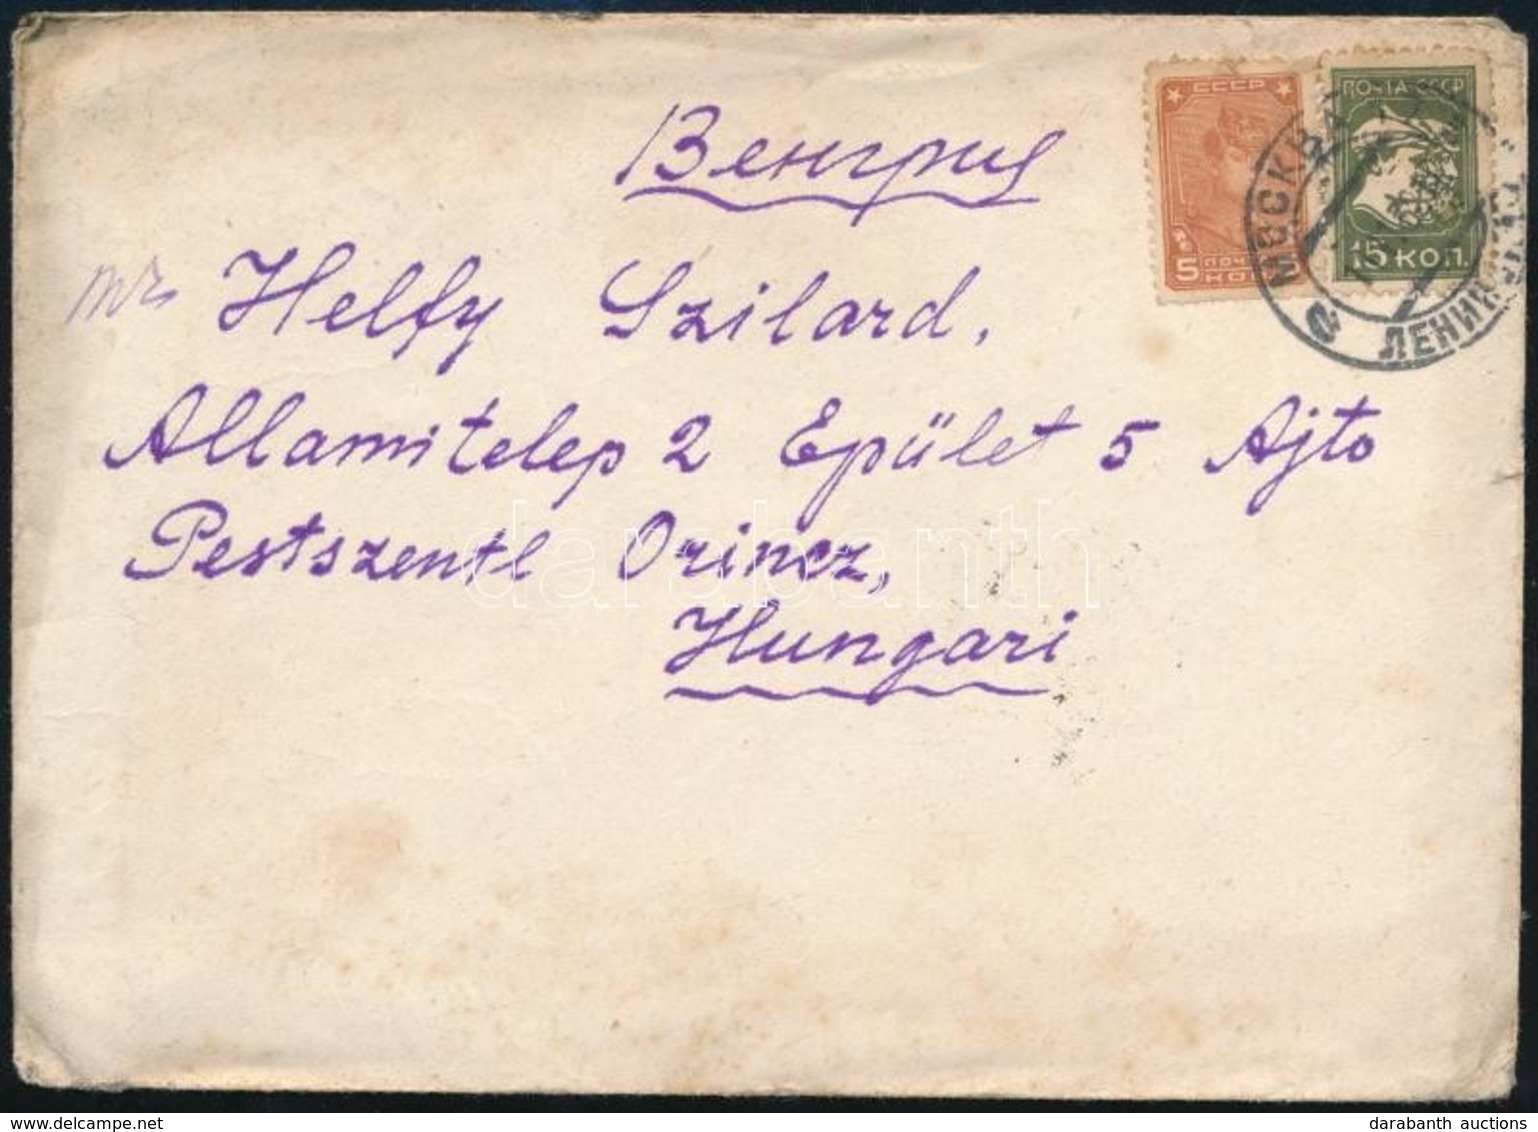 Венгрия
mrs Helfy Szilard,
Allamitelep 2 Epület 5 Ajto
Pestszentl Orincz,
Hungari
СССР
5 ПОЧТА
КОП.
ПОЧТА СССР
15 КОП.
МОСКВА
ЛЕНИН
darabanth
darabanth auctions